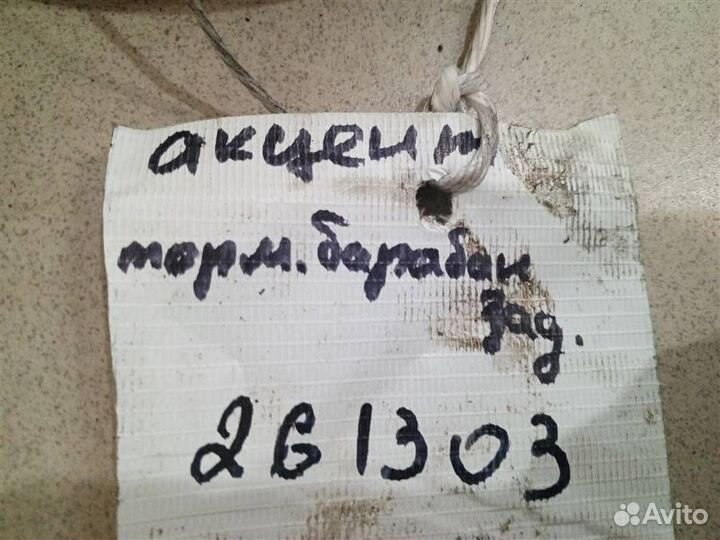 акцент
торм. барабан
зад.
261303
Avito